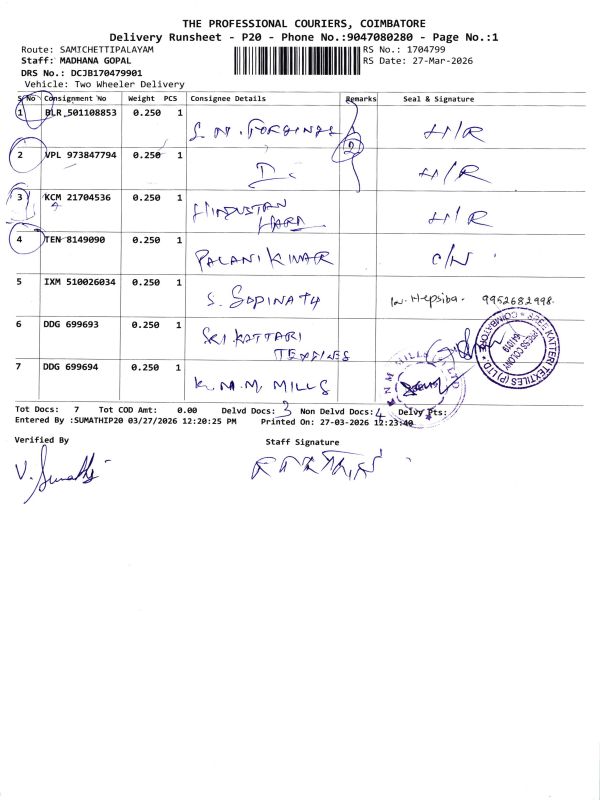 THE PROFESSIONAL COURIERS, COIMBATORE
Delivery Runsheet - P20 - Phone No.:9047080280 - Page No.:1
Route: SAMICHETTIPALAYAM
RS No.: 1704799
Staff: MADHANA GOPAL
RS Date: 27-Mar-2026
DRS No.: DCJB170479901
Vehicle: Two Wheeler Delivery
S No Consignment No Weight PCS Consignee Details Remarks Seal & Signature
1 BLR 501108853 0.250 1 H/R
2 VPL 973847794 0.250 1 H/R
3 KCM 21704536 0.250 1 HINDUSTAN H/R
4 TEN 8149090 0.250 1 PALANI KUMAR
5 IXM 510026034 0.250 1 S. GOPINATH Hepsiba. 9952682998.
6 DDG 699693 0.250 1 SRI KATTARI
TEXTILES
7 DDG 699694 0.250 1 K.M.M. MILLS
Tot Docs: 7 Tot COD Amt: 0.00 Delvd Docs: 3 Non Delvd Docs: 4 Delvy Pts:
Entered By :SUMATHIP20 03/27/2026 12:20:25 PM Printed On: 27-03-2026 12:23:40
Verified By Staff Signature
V. Sumathi